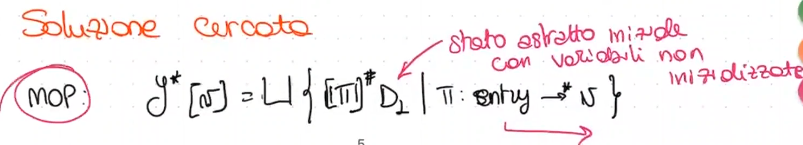 Soluzione cercata
stato astratto iniziale
con variabili non
inizializzate
MOP: y* [v] = ⊔ { [π]# D⊥ | π: entry →* v }
5